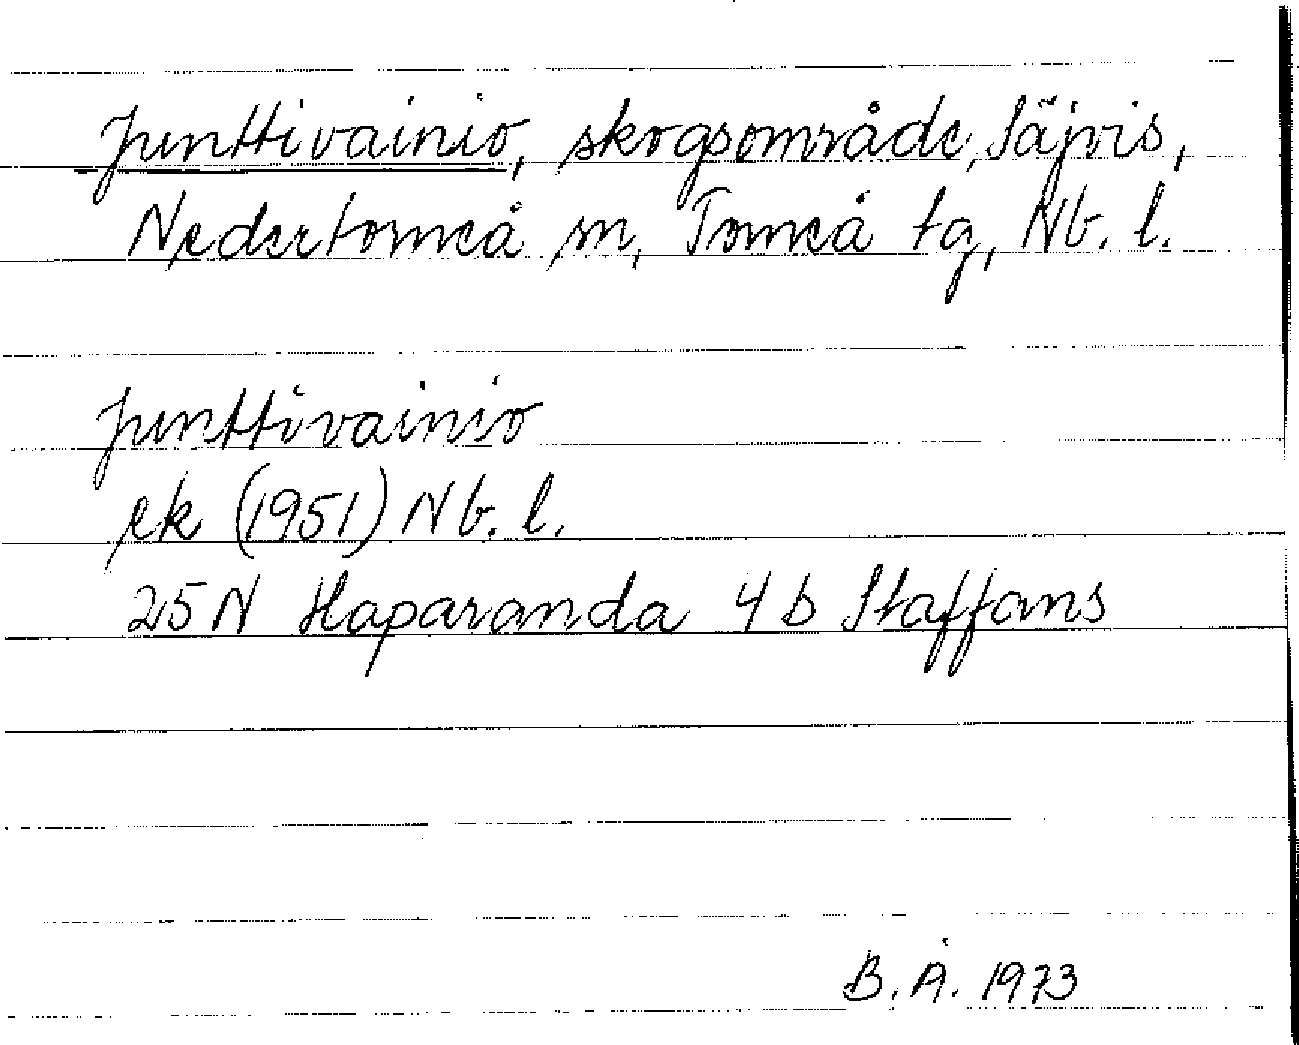 Junttivainio, skogsområde, Säjvis,
Nedertorneå sn, Torneå tg, Nb. l.
Junttivainio
ek (1951) Nb. l.
25 N Haparanda 4 b Staffans
B. Å. 1973